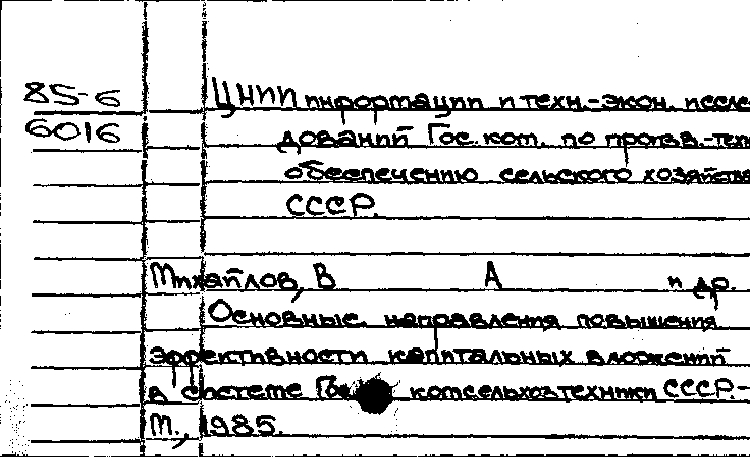 85-6
6016
ЦНИИ информации и техн.-экон. иссле
дований Гос. ком. по произв.-техн
обеспечению сельского хозяйства
СССР.
Михайлов, В А и др.
Основные направления повышения
эффективности капитальных вложений
в системе Гос комсельхозтехники СССР.-
М., 1985.